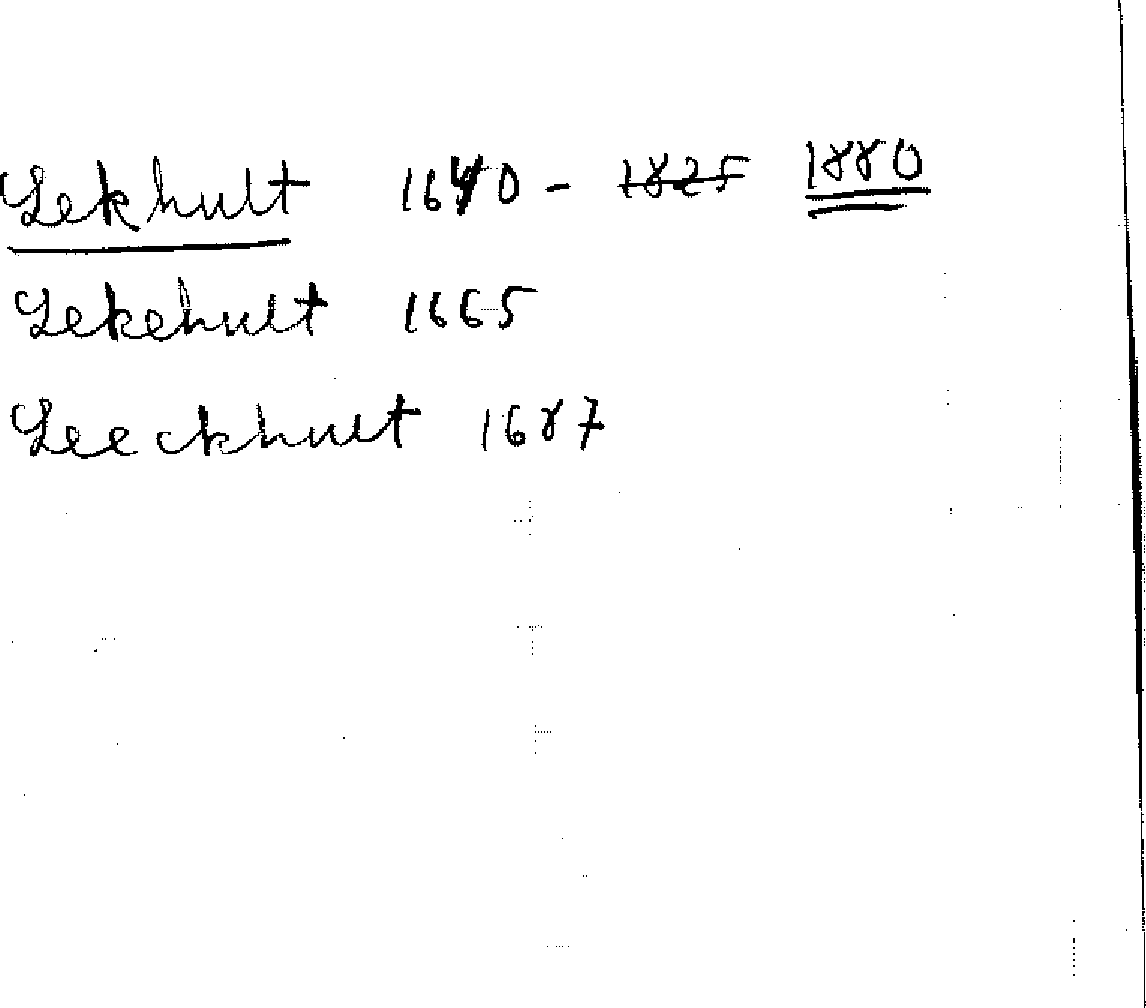 Lekhult 1640 - 1825 1880
Lekehult 1665
Leeckhult 1687